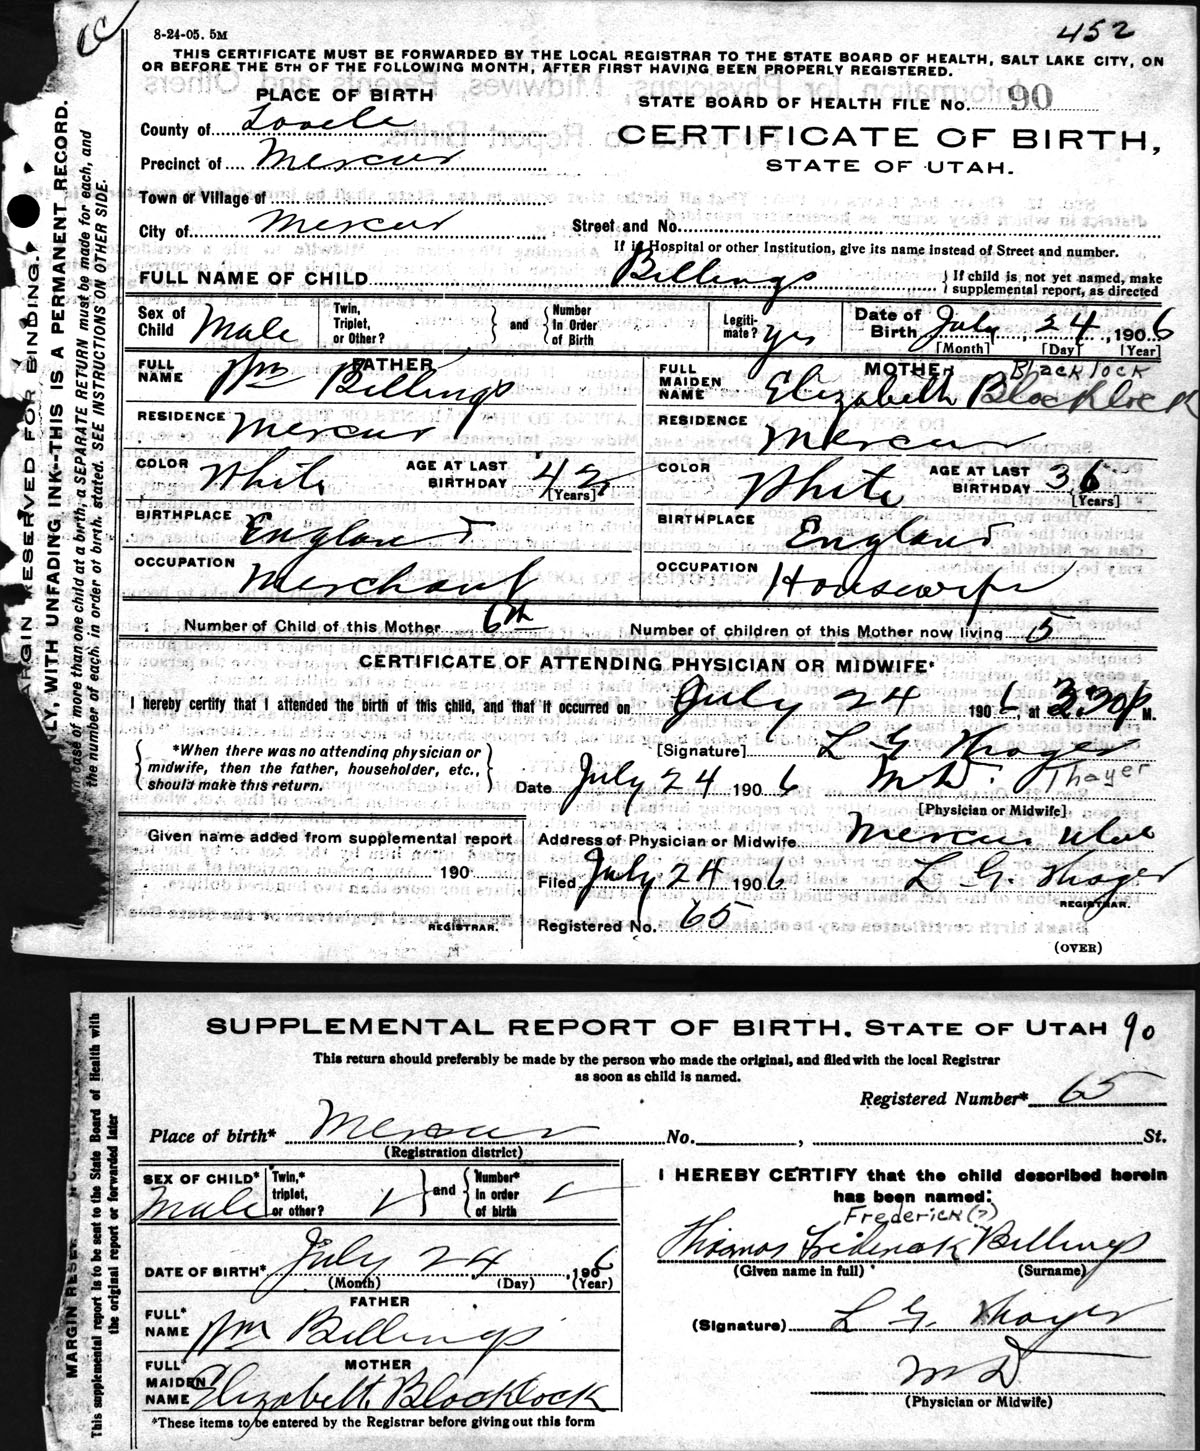 8-24-05. 5M
452
THIS CERTIFICATE MUST BE FORWARDED BY THE LOCAL REGISTRAR TO THE STATE BOARD OF HEALTH, SALT LAKE CITY, ON
OR BEFORE THE 5TH OF THE FOLLOWING MONTH, AFTER FIRST HAVING BEEN PROPERLY REGISTERED.
PLACE OF BIRTH
STATE BOARD OF HEALTH FILE No. 90
County of
CERTIFICATE OF BIRTH,
Precinct of Mercur
STATE OF UTAH.
Town or Village of
City of Mercur
Street and No.
If in Hospital or other Institution, give its name instead of Street and number.
FULL NAME OF CHILD Billings } If child is not yet named, make supplemental report, as directed
Sex of Child Male Twin, Triplet, or Other? } and { Number In Order of Birth Legiti-mate? yes Date of Birth July 24, 1906
[Month] [Day] [Year]
FATHER
FULL NAME Wm Billings
RESIDENCE Mercur
COLOR White AGE AT LAST BIRTHDAY 42 [Years]
BIRTHPLACE England
OCCUPATION Merchant
MOTHER Blacklock
FULL MAIDEN NAME Elizabeth Blacklock
RESIDENCE Mercur
COLOR White AGE AT LAST BIRTHDAY 36 [Years]
BIRTHPLACE England
OCCUPATION Housewife
Number of Child of this Mother 6th Number of children of this Mother now living 5
CERTIFICATE OF ATTENDING PHYSICIAN OR MIDWIFE*
I hereby certify that I attended the birth of this child, and that it occurred on July 24 1906, at 3:30 P M.
{ *When there was no attending physician or
midwife, then the father, householder, etc.,
should make this return. }
[Signature] L G Thayer
Date July 24 1906 M D. Thayer
[Physician or Midwife]
Given name added from supplemental report
190
REGISTRAR.
Address of Physician or Midwife Mercur Utah
Filed July 24 1906 L G. Thayer
REGISTRAR.
Registered No. 65
(OVER)
MARGIN RESERVED FOR BINDING.
LY, WITH UNFADING INK--THIS IS A PERMANENT RECORD.
case of more than one child at a birth, a SEPARATE RETURN must be made for each, and
the number of each, in order of birth, stated. SEE INSTRUCTIONS ON OTHER SIDE.
SUPPLEMENTAL REPORT OF BIRTH. STATE OF UTAH 90
This return should preferably be made by the person who made the original, and filed with the local Registrar
as soon as child is named.
Registered Number* 65
Place of birth* Mercur No. , St.
(Registration district)
SEX OF CHILD* Male Twin,* triplet, or other? } and { Number* in order of birth
DATE OF BIRTH* July 24, 1906
(Month) (Day) (Year)
FATHER
FULL* NAME Wm Billings
MOTHER
FULL* MAIDEN NAME Elizabeth Blacklock
*These items to be entered by the Registrar before giving out this form
I HEREBY CERTIFY that the child described herein
has been named:
Frederick(?)
Thomas Fridenak Billings
(Given name in full) (Surname)
(Signature) L G. Thayer
M D
(Physician or Midwife)
This supplemental report is to be sent to the State Board of Health with
the original report or forwarded later